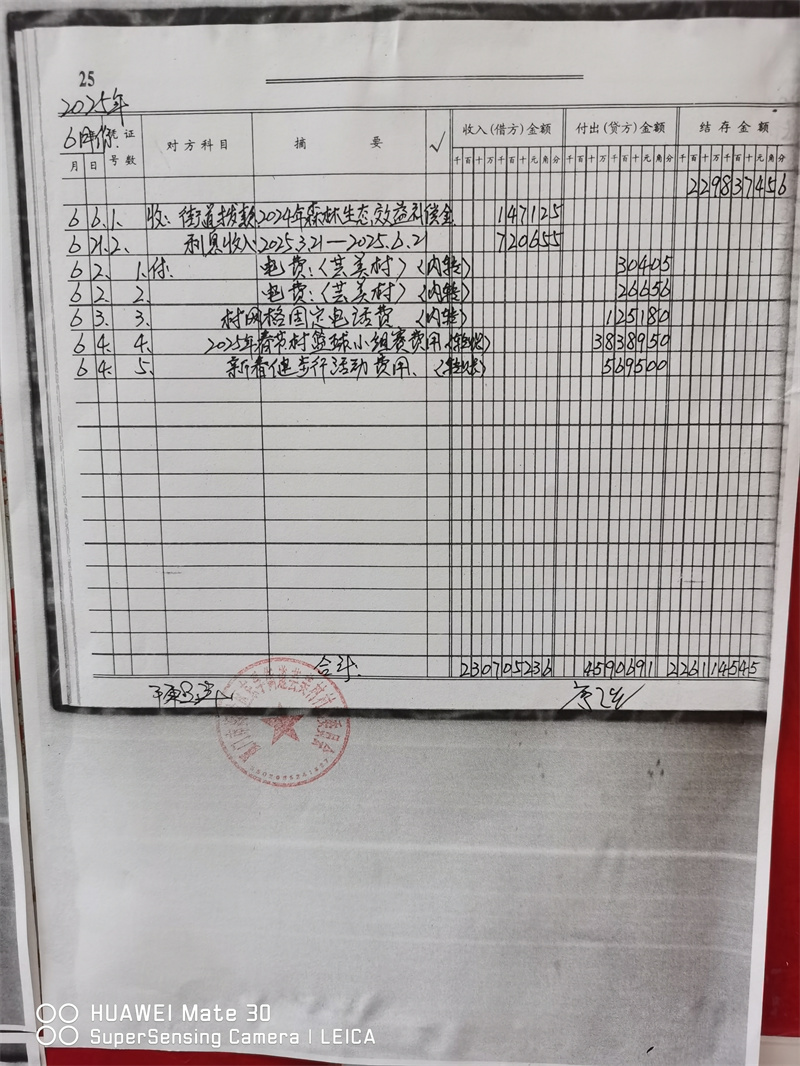 25
2025年
6月份 凭证 对方科目 摘要 √ 收入(借方)金额 付出(贷方)金额 结存金额
月 日 号数 千百十万千百十元角分 千百十万千百十元角分 千百十万千百十元角分
229837456
6 6. 1. 收: 街道拨款2024年森林生态效益补偿金 147125
6 21. 2. 利息收入2025.3.21—2025.6.21 720655
6 2. 1. 付: 电费:(芸美村)(内转) 30405
6 2. 2. 电费:(芸美村)(内转) 26656
6 3. 3. 村网格固定电话费(内转) 125180
6 4. 4. 2025年春节村篮球小组赛费用(转账) 3838950
6 4. 5. 新春健步行活动费用.(转账) 569500
合计. 230705236 4590691 226114545
HUAWEI Mate 30
SuperSensing Camera | LEICA